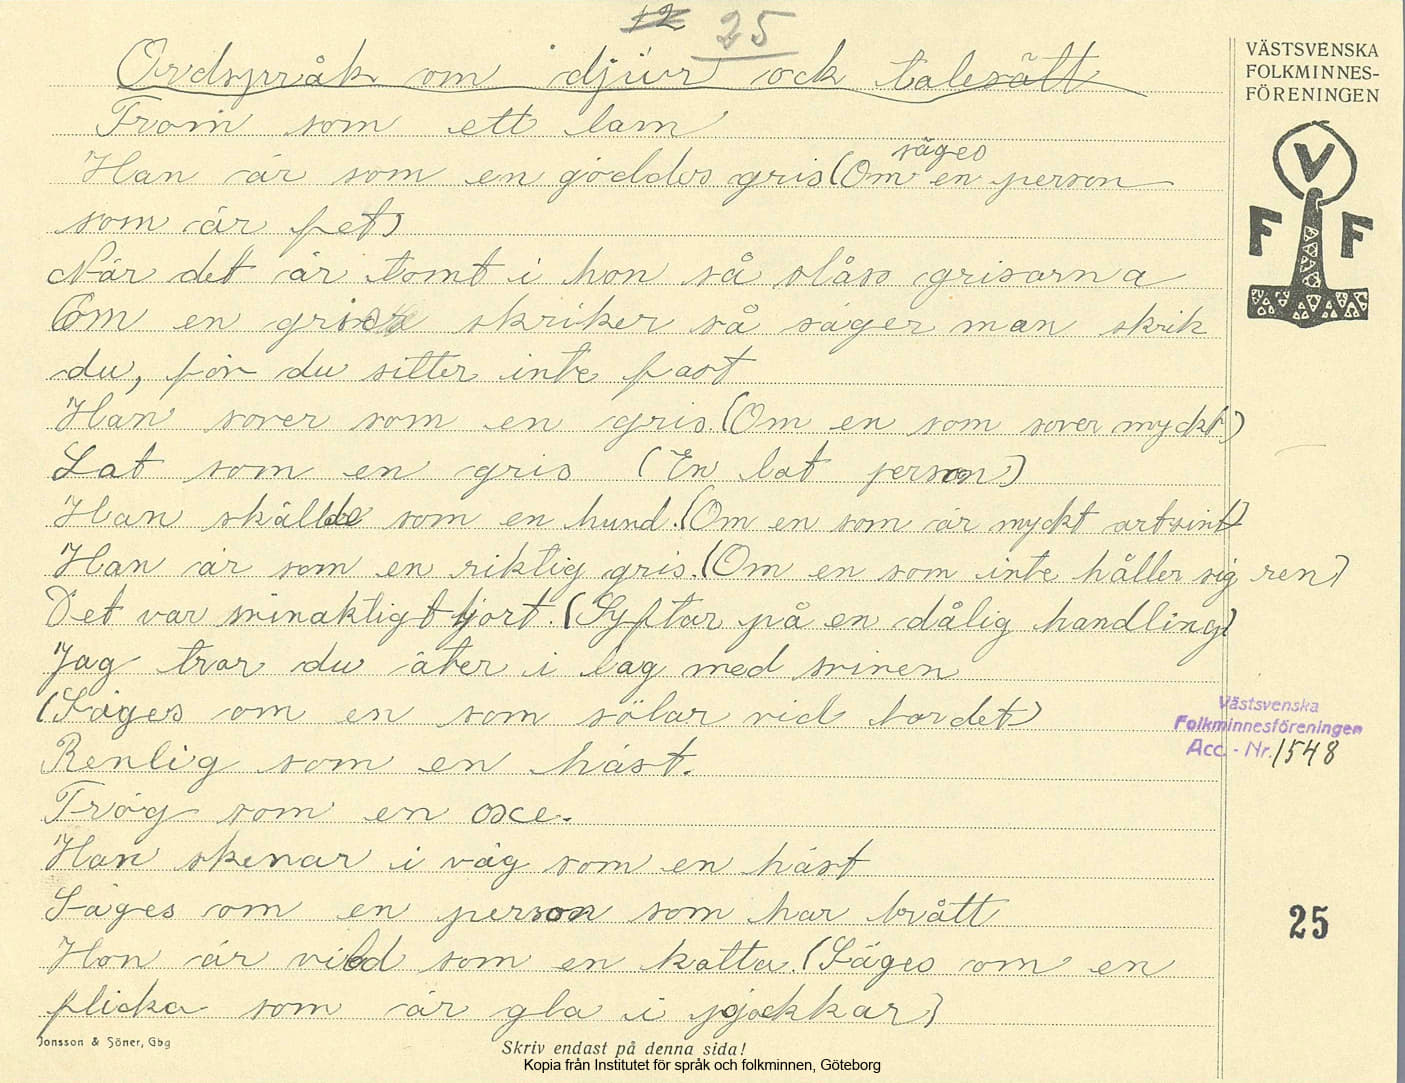 12 25
Ordspråk om djur ock talesätt
From som ett lam
säges
Han är som en göddes gris (Om en person
som är fet)
När det är tomt i hon så slåss grisarna
Om en gris skriker så säger man skrik
du, för du sitter inte fast
Han sover som en gris. (Om en som sover myckt)
Lat som en gris (En lat person)
Han skällde som en hund. (Om en som är myckt artsint)
Han är som en riktig gris. (Om en som inte håller sig ren)
Det var svinaktigt gjort. (Syftar på en dålig handling)
Jag tror du äter i lag med svinen
(Säges om en som sölar vid bordet)
Renlig som en häst.
Trög som en oxe.
Han skenar i väg som en häst
Säges om en person som har brått
Hon är vild som en katta. (Säges om en
flicka som är gla i pojkkar)
Jonsson & Söner, Gbg
Skriv endast på denna sida!
Kopia från Institutet för språk och folkminnen, Göteborg
VÄSTSVENSKA
FOLKMINNES-
FÖRENINGEN
V
F F
Västsvenska
Folkminnesföreningen
Acc. - Nr. 1548
25